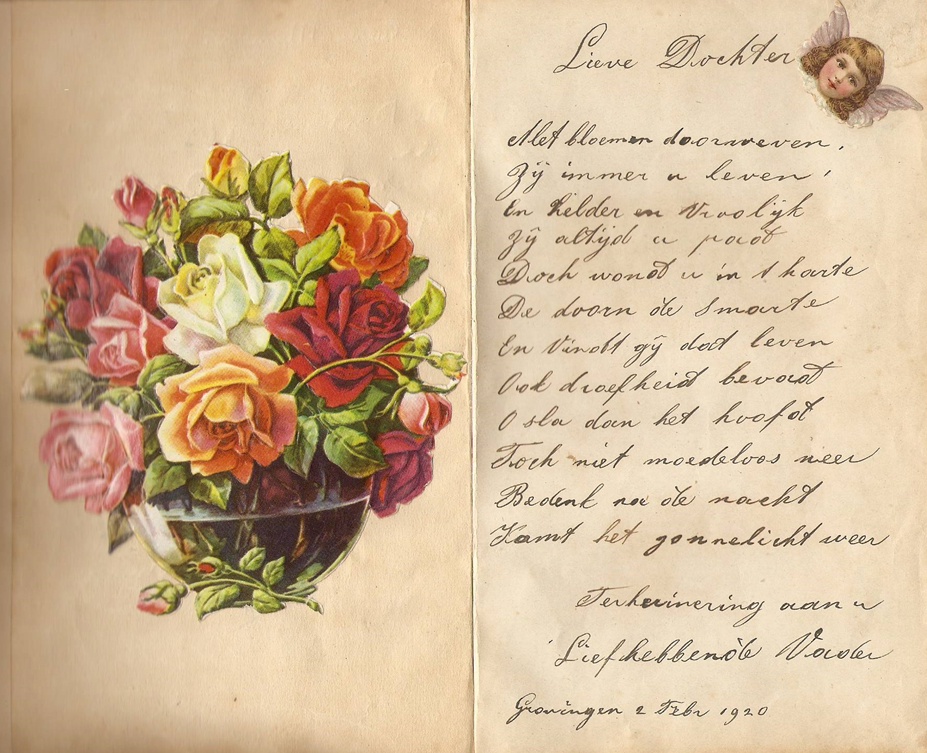 Lieve Dochter
Met bloemen doorweven,
Zij immer u leven,
En helder en Vroolijk
Zij altijd u pad
Doch wondt u in 't harte
De doorn de smarte
En Vindt gij dat leven
Ook droefheid bevat
O sla dan het hoofdt
Toch niet moedeloos neer
Bedenk na de nacht
Komt het zonnelicht weer
Terherinering aan u
Liefhebbende Vader
Groningen 2 Febr 1920